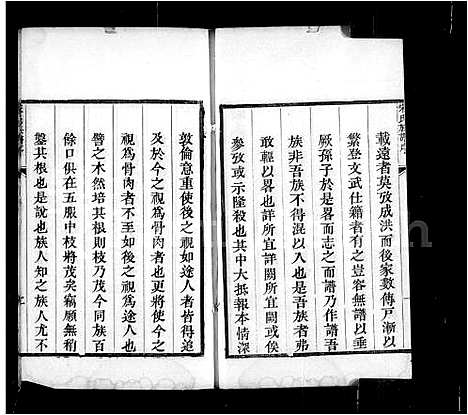 載遠者莫攷成洪而後家數傳戸漸以
繁登文武仕籍者有之豈容無譜以垂
厥孫子於是畧而志之而譜乃作譜吾
族非吾族不得混以入也是吾族者弗
敢輕以畧也詳所宜詳闕所宜闕或俟
參攷或示隆殺也其中大抵報本情深
敦倫意重使後之視如途人者皆得追
及於今之視爲骨肉者也更毋使今之
視爲骨肉者不至如後之視爲途人也
譬之木然培其根則枝乃茂今同族百
餘口俱在五服中枝將茂矣竊願無稍
鑿其根也是說也族人知之族人尤不